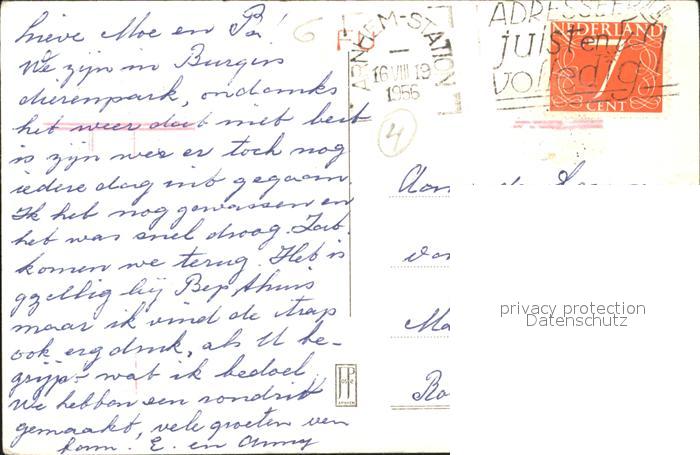 Lieve Moe en Pa!
We zijn in Burgers
dierenpark, ondanks
het weer dat niet best
is zijn we er toch nog
iedere dag uit gegaan.
Ik heb nog gewassen en
het was snel droog. Zat.
komen we terug. Het is
gezellig bij Bep thuis
maar ik vind de trap
ook erg druk, als U be-
grijpt wat ik bedoel.
We hebben een rondrit
gemaakt, vele groeten van
E. en Anny
6
ARNHEM-STATION
16 VIII 19
1956
4
ADRESSEER
juist en
volledig
NEDERLAND
1
CENT
Aan
Ma
privacy protection
Datenschutz